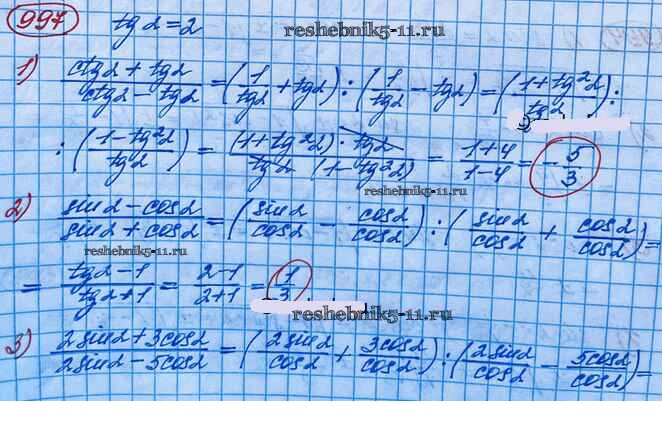 997 tg α = 2 reshebnik5-11.ru
1) (ctg α + tg α)/(ctg α − tg α) = (1/tg α + tg α) : (1/tg α − tg α) = ((1 + tg²α)/tg α) :
: ((1 − tg²α)/tg α) = ((1 + tg²α) · tg α)/(tg α (1 − tg²α)) = (1+4)/(1−4) = −5/3
www.reshebnik5-11.ru
2) (sin α − cos α)/(sin α + cos α) = (sin α/cos α − cos α/cos α) : (sin α/cos α + cos α/cos α) =
www.reshebnik5-11.ru
= (tg α − 1)/(tg α + 1) = (2−1)/(2+1) = 1/3
reshebnik5-11.ru
3) (2 sin α + 3 cos α)/(2 sin α − 5 cos α) = (2 sin α/cos α + 3 cos α/cos α) : (2 sin α/cos α − 5 cos α/cos α) =